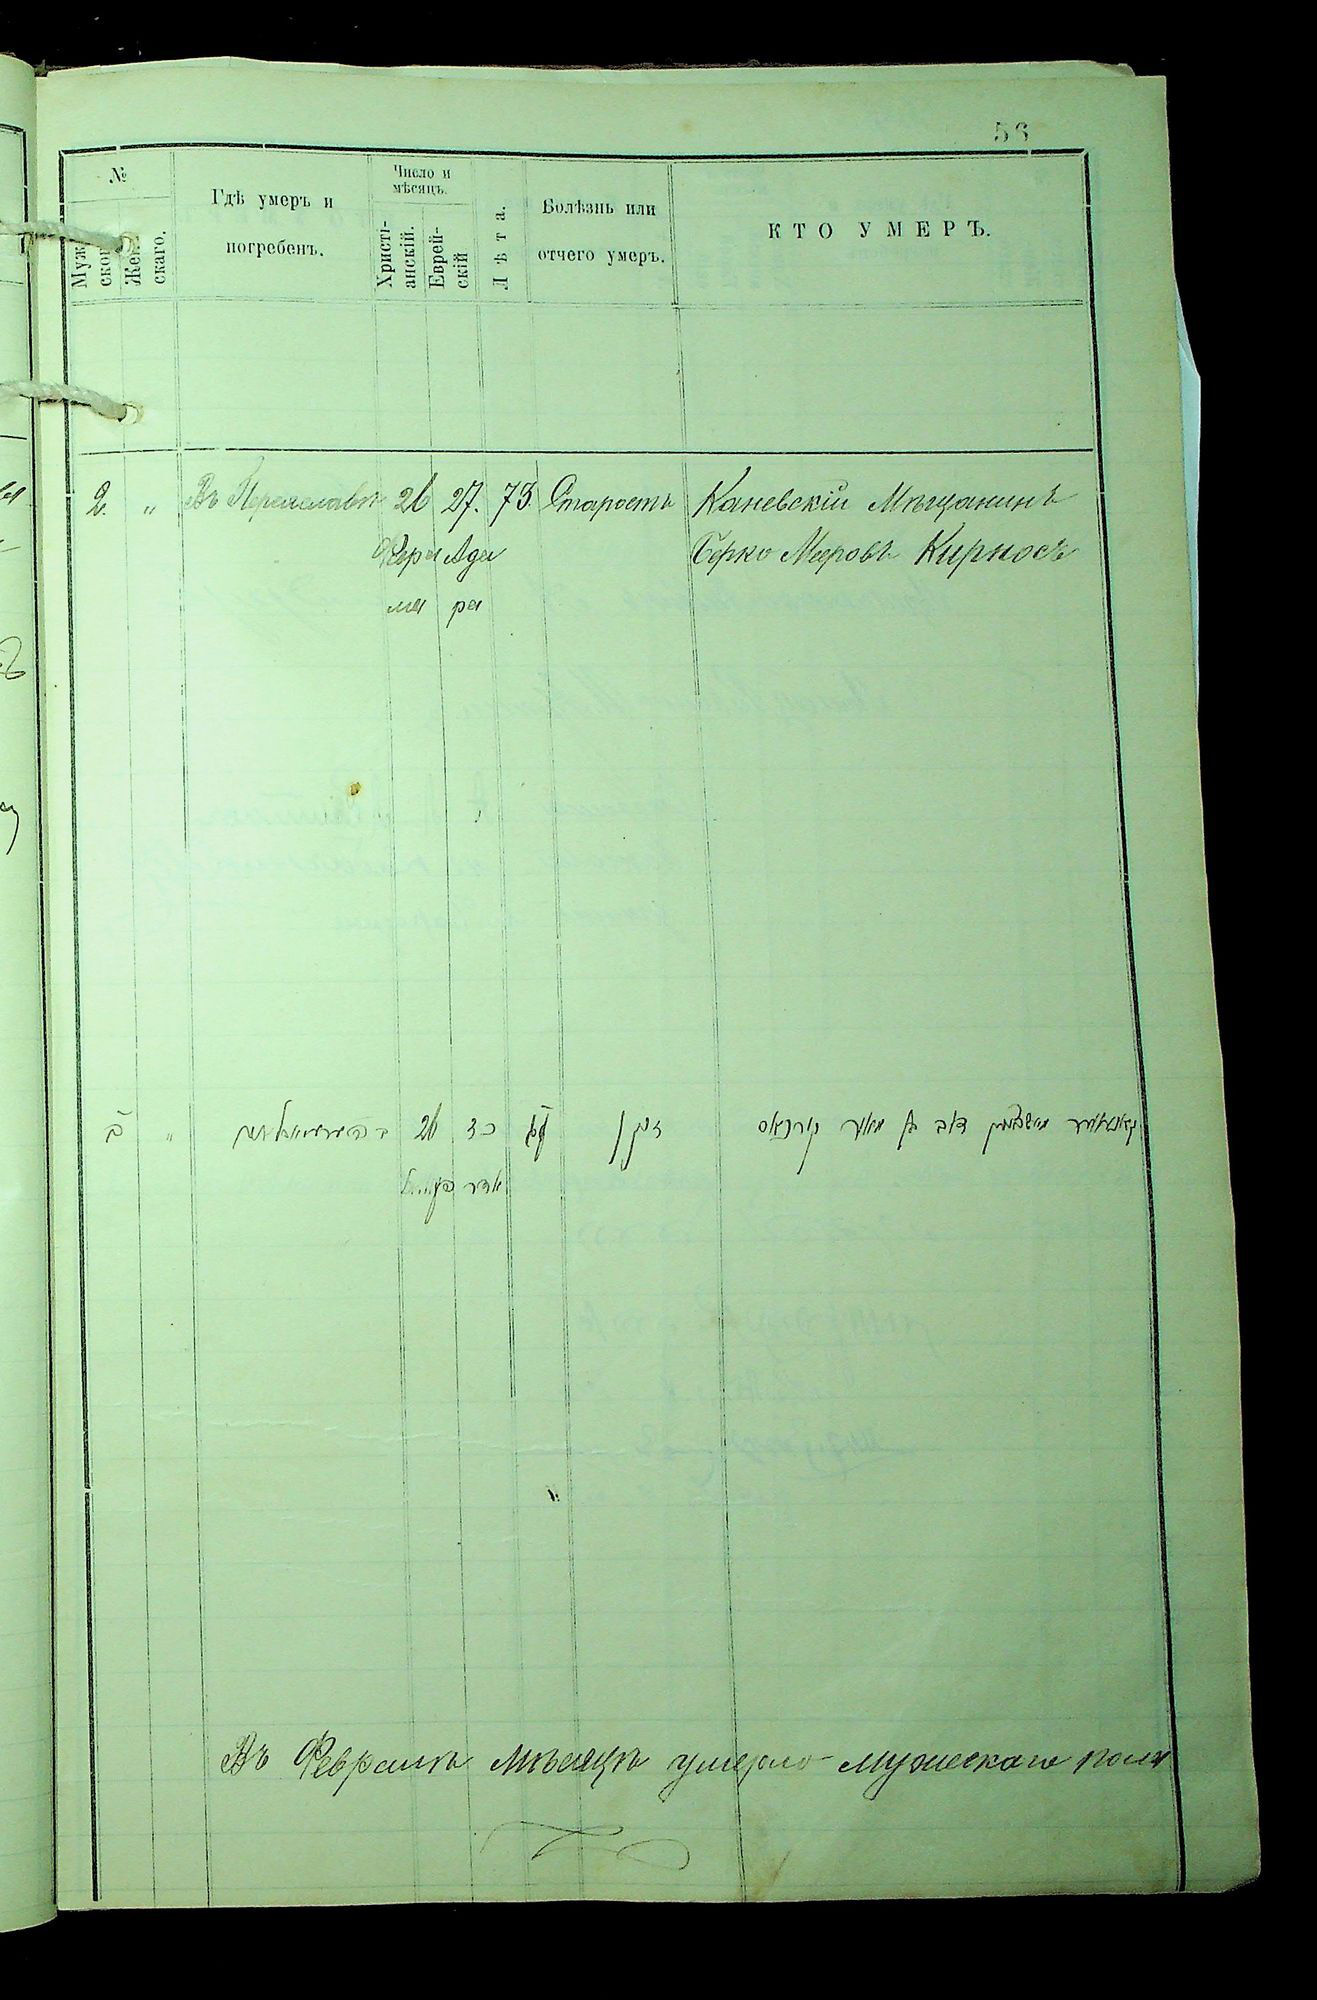 56
№
Муж
ског
Жен
скаго.
Гдѣ умеръ и
погребенъ.
Число и
мѣсяцъ.
Христі-
анскій.
Еврей-
скій
Лѣта.
Болѣзнь или
отчего умеръ.
КТО УМЕРЪ.
2. " Въ Переяславѣ 26 27. 73. Старость Каневскій Мѣщанинъ
Февра Ада Берко Мееровъ Кирносъ
ля ра
ב " 26 זקן דוב בן מאיר
אדר
Въ Февралѣ Мѣсяцѣ умерло мужескаго пола